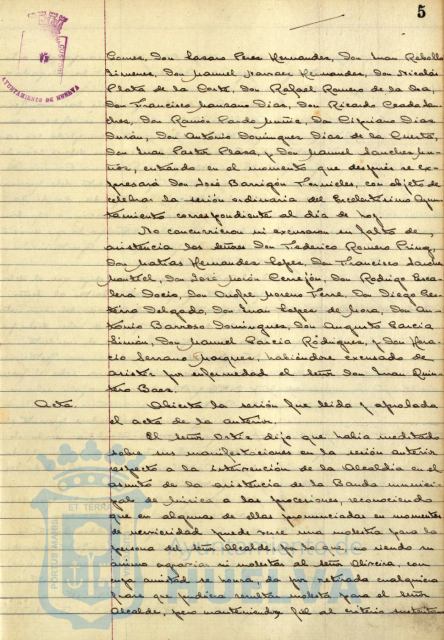 5
AYUNTAMIENTO DE HUELVA
Gomez, Don Lazaro Perez Hernandez, Don Juan Rebollo
Jimenez, Don Manuel Narvaez Hernandez, Don Nicolás
Plata de la Corte, Don Rafael Romero de la
Don Francisco Manzano Dias, Don Ricardo
ches, Don Ramón Pardo Muñiz, Don Cipriano Dias
Durán, Don Antonio Dominguez Dias de la
Don Juan Pastor Plaza, y Don Manuel Sanchez Mu-
ñoz, entrando en el momento que después se ex-
presará Don José Barrigón Fornieles, con objeto de
celebrar la sesión ordinaria del Excelentísimo Ayun-
tamiento correspondiente al día de hoy
No concurrieron ni excusaron su falta de
asistencia los señores Don Federico Romero
Don Matías Hernandez Lopez, Don Francisco
Montiel, Don José Morón Cerrejón, Don Rodrigo
Socio, Don Onofre Moreno Don Diego
Delgado, Don Juan Lopez de Mora, Don An-
tonio Barroso Dominguez, Don Augusto Garcia
Simón, Don Manuel Garcia Rodriguez, y Don Hora-
cio Serrano Marquez, habiéndose excusado de
asistir por enfermedad el señor Don Juan Quin-
tero Baez.
Acta. Abierta la sesión fue leida y aprobada
el acta de la anterior.
El señor Ortiz dijo que había meditado
sobre sus manifestaciones en la sesión anterior
respecto a la intervención de la Alcaldía en el
asunto de la asistencia de la Banda munici-
pal de música a las procesiones, reconociendo
que en algunas de ellas pronunciadas en momentos
de nerviosidad puede verse una molestia para la
persona del señor Alcalde, por lo que no siendo su
animo agraviar ni molestar al señor Oliveira, con
cuya amistad se honra, da por retirada cualquiera
frase que pudiera resultar molesta para el señor
Alcalde, pero manteniendo, fiel al criterio sustentado
PORTUS MARIS ET TERRAE CUSTODIA
Ayuntamiento de
HUELVA